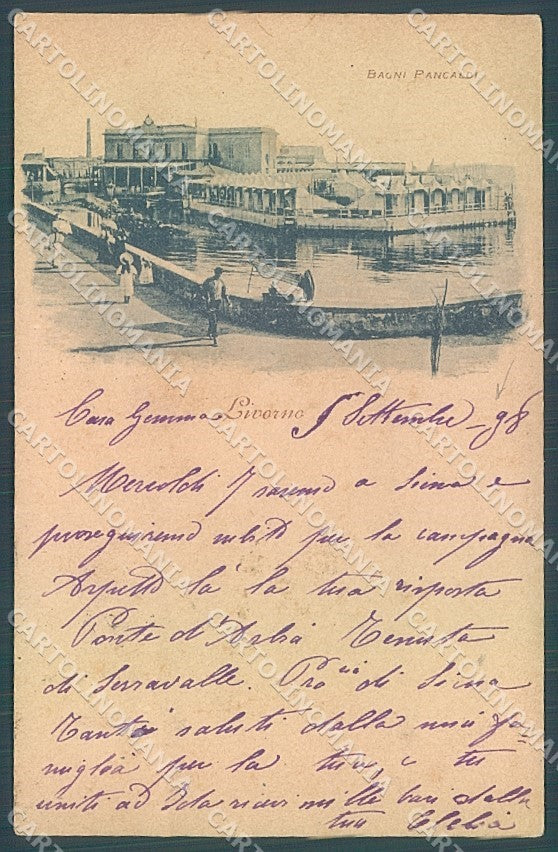 BAGNI PANCALDI
Cara Gemma Livorno 5 Settembre 98
Mercoldi 7 saremo a Siena e
proseguiremo subito per la campagna
Aspetto là la tua risposta
Ponte d'Arbia Tenuta
di Serravalle. Pro.cia di Siena
Tanti saluti dalla mia fa
miglia per la tua, e tu
uniti ad Ida ricevi mille baci dalla
tua Clelia
CARTOLINOMANIA